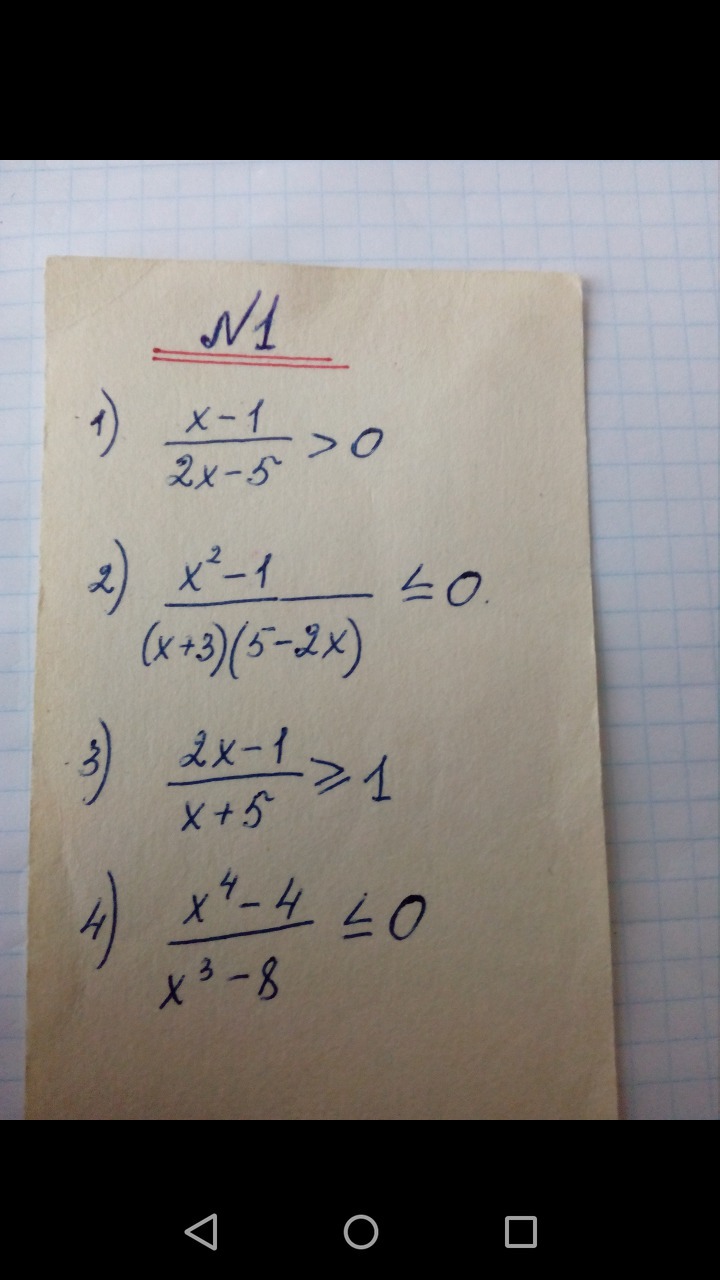 №1
1) (x-1)/(2x-5) > 0
2) (x²-1)/((x+3)(5-2x)) ≤ 0.
3) (2x-1)/(x+5) ≥ 1
4) (x⁴-4)/(x³-8) ≤ 0